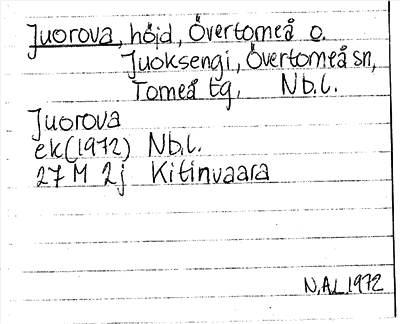 Juorova, höjd, Övertorneå o.
Juoksengi, Övertorneå sn,
Torneå tg, Nb.l.
Juorova
ek(1972) Nb.l.
27 M 2j Kitinvaara
N.Al 1972